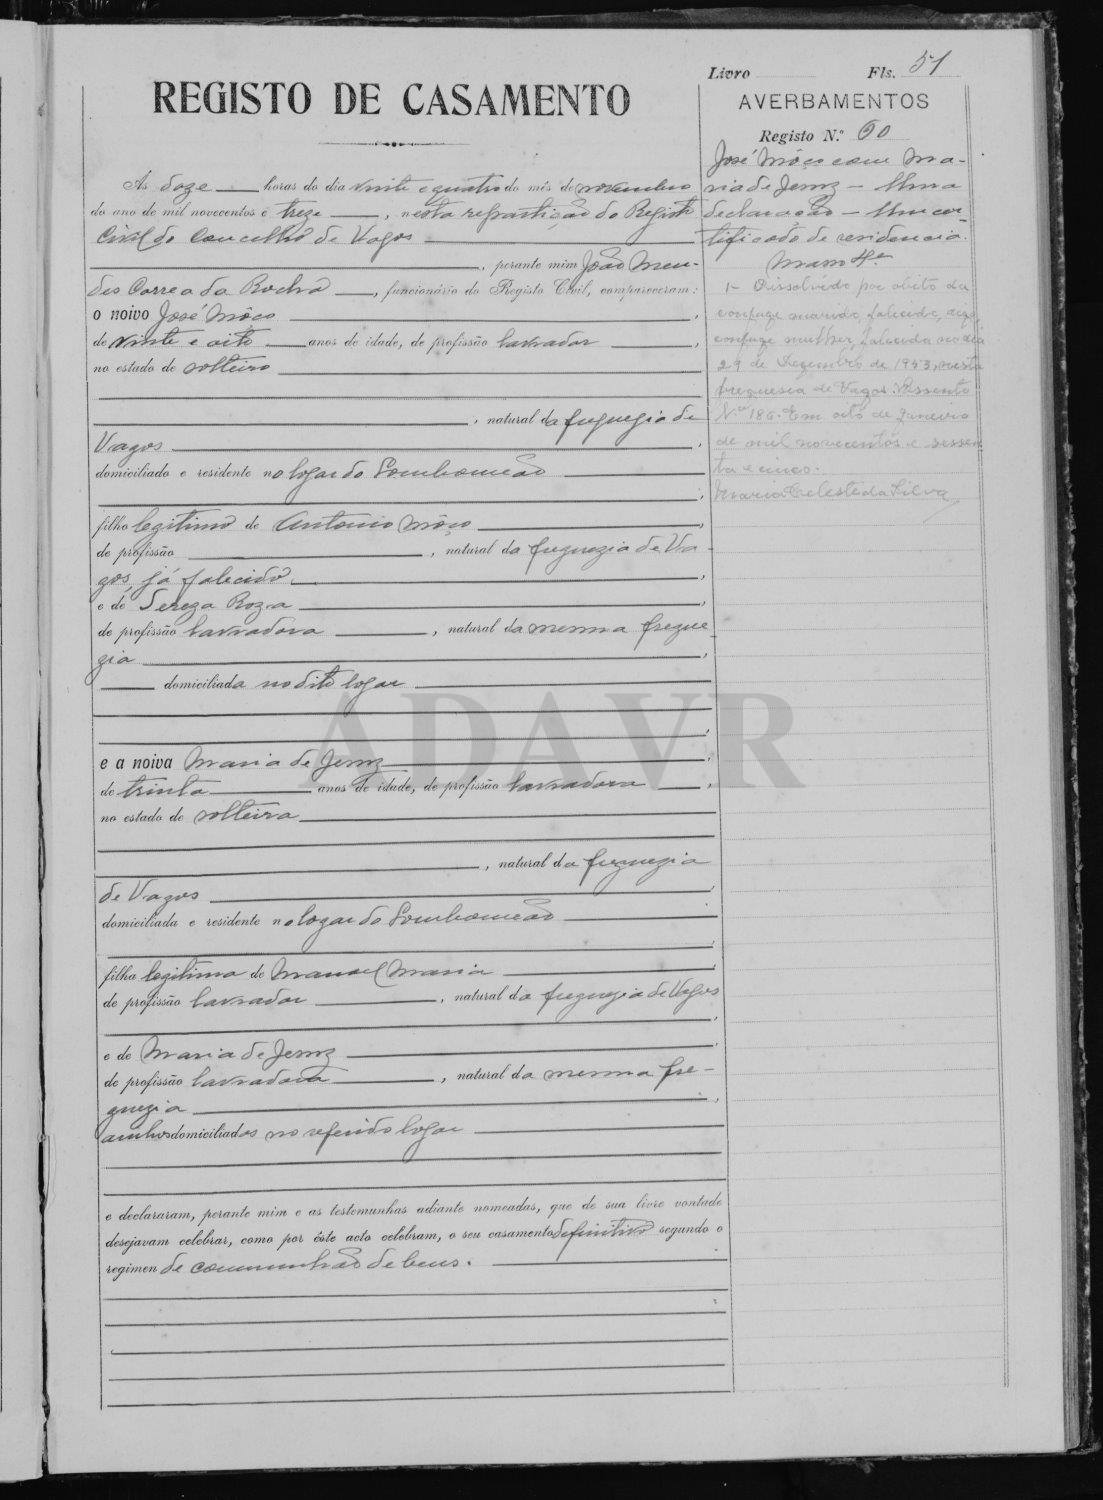 Livro Fls. 51
REGISTO DE CASAMENTO
AVERBAMENTOS
Registo N.º 60
José Môço com Ma-
ria de Jesuz — Uma
declaração — Um cer-
tificado de residencia.
1 - Dissolvido por obito da
conjuge marido, falecido, digo,
conjuge mulher, falecida no dia
29 de Dezembro de 1953, nesta
freguesia de Vagos. Assento
N.º 186. Em oito de Janeiro
de mil novecentos e sessen
ta e cinco.
Maria Celeste da Silva
Ás doze horas do dia vinte e quatro do mês de novembro
do ano de mil novecentos e treze, nesta repartição do Registo
Civil do Concelho de Vagos
, perante mim João Men-
des Correa da Rocha, funcionário do Registo Civil, compareceram:
o noivo José Môço,
de vinte e oito anos de idade, de profissão lavrador,
no estado de solteiro
, natural da freguezia de
Vagos,
domiciliado e residente no logar do Lombomeão
,
filho legitimo de Antonio Môço,
de profissão , natural da freguezia de Va-
gos, já falecido,
e de Tereza Roza,
de profissão lavradora, natural da mesma fregue
zia,
domiciliada no dito logar
,
e a noiva Maria de Jesuz,
de trinta anos de idade, de profissão lavradora,
no estado de solteira
, natural da freguezia
de Vagos,
domiciliada e residente no logar do Lombomeão
,
filha legitima de Manoel Maria,
de profissão lavrador, natural da freguezia de Vagos
,
e de Maria de Jesuz,
de profissão lavradora, natural da mesma fre-
guezia,
ambos domiciliados no referido logar
e declararam, perante mim e as testemunhas adiante nomeadas, que de sua livre vontade
desejavam celebrar, como por êste acto celebram, o seu casamento definitivo segundo o
regimen de communhão de bens.
ADAVR